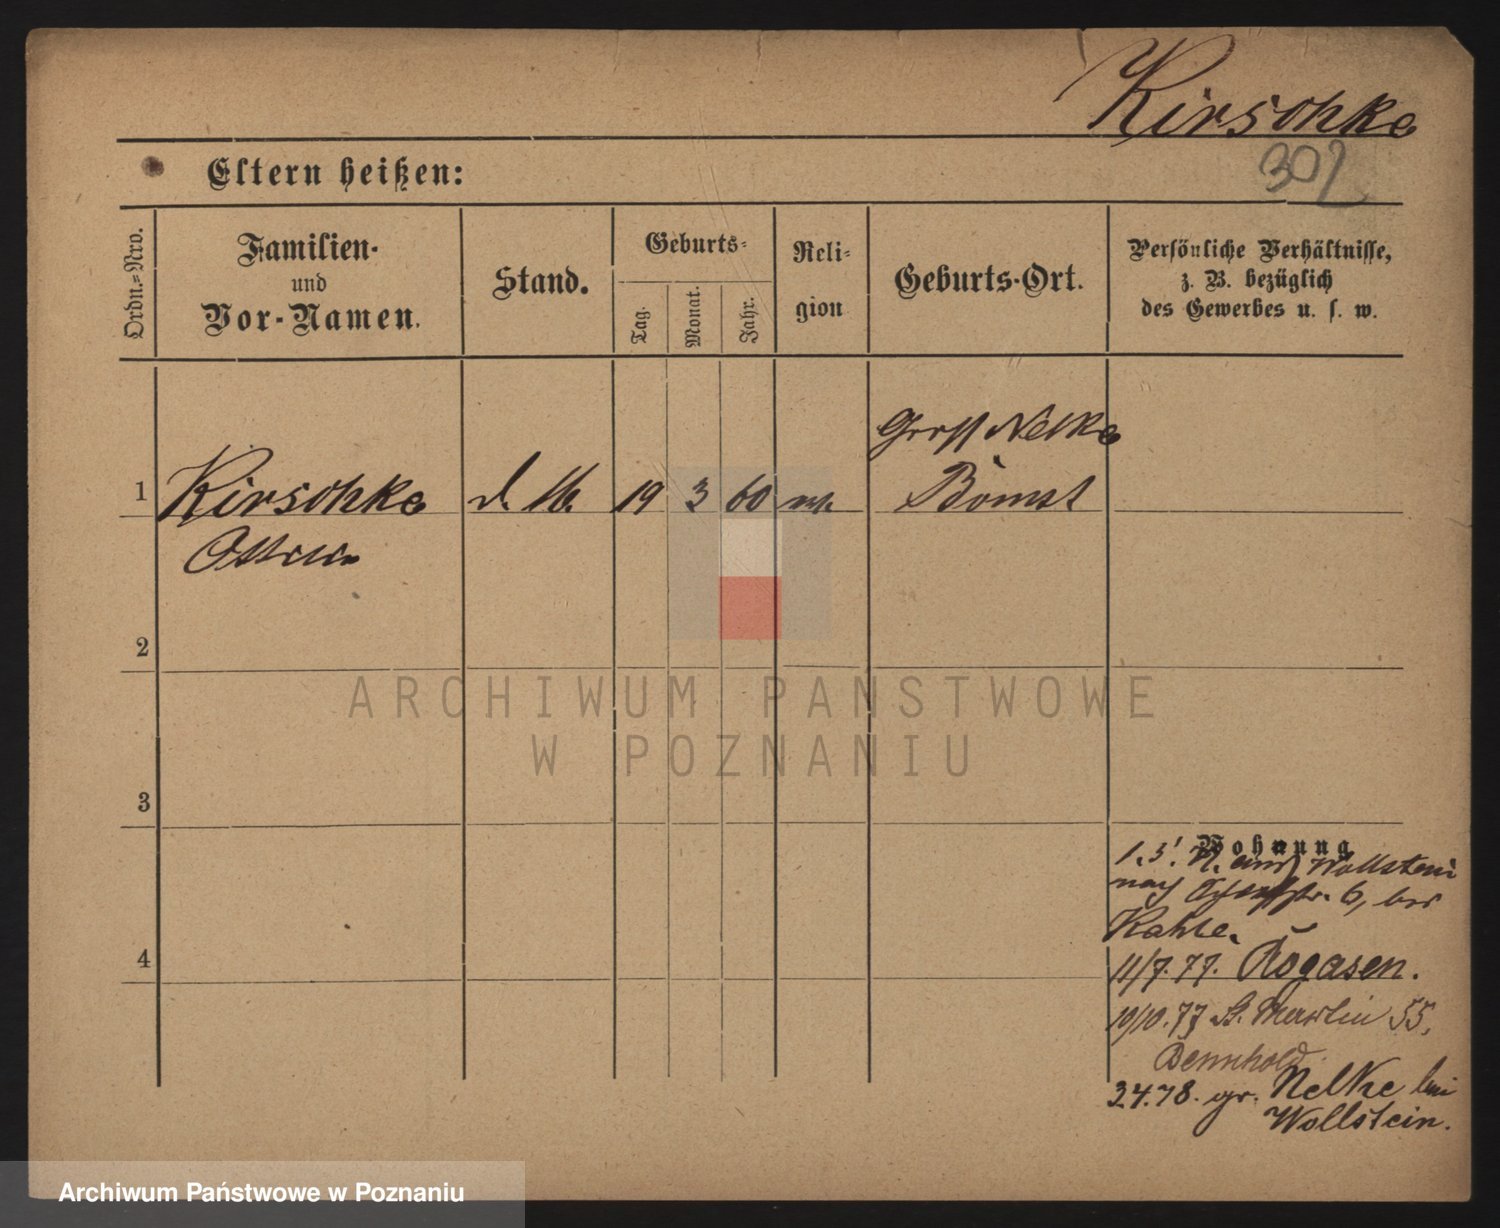 Kirschke
302
Eltern heißen:
Ordn.=Nro.
Familien-
und
Vor-Namen.
Stand.
Geburts-
Tag.
Monat.
Jahr.
Reli-
gion
Geburts-Ort.
Persönliche Verhältnisse,
z. B. bezüglich
des Gewerbes u. s. w.
Gross Nelke
1 Kirschke d. M. 19 3 60 Bomst
2
3
4
Wohnung
1.3. Wollstein
nach 6, bei
Kahle.
11/7. 77. Rogasen.
10/10. 77 St. Martin 55,
Bennhold.
24.78. gr. Nelke bei
Wollstein.
ARCHIWUM PAŃSTWOWE
W POZNANIU
Archiwum Państwowe w Poznaniu